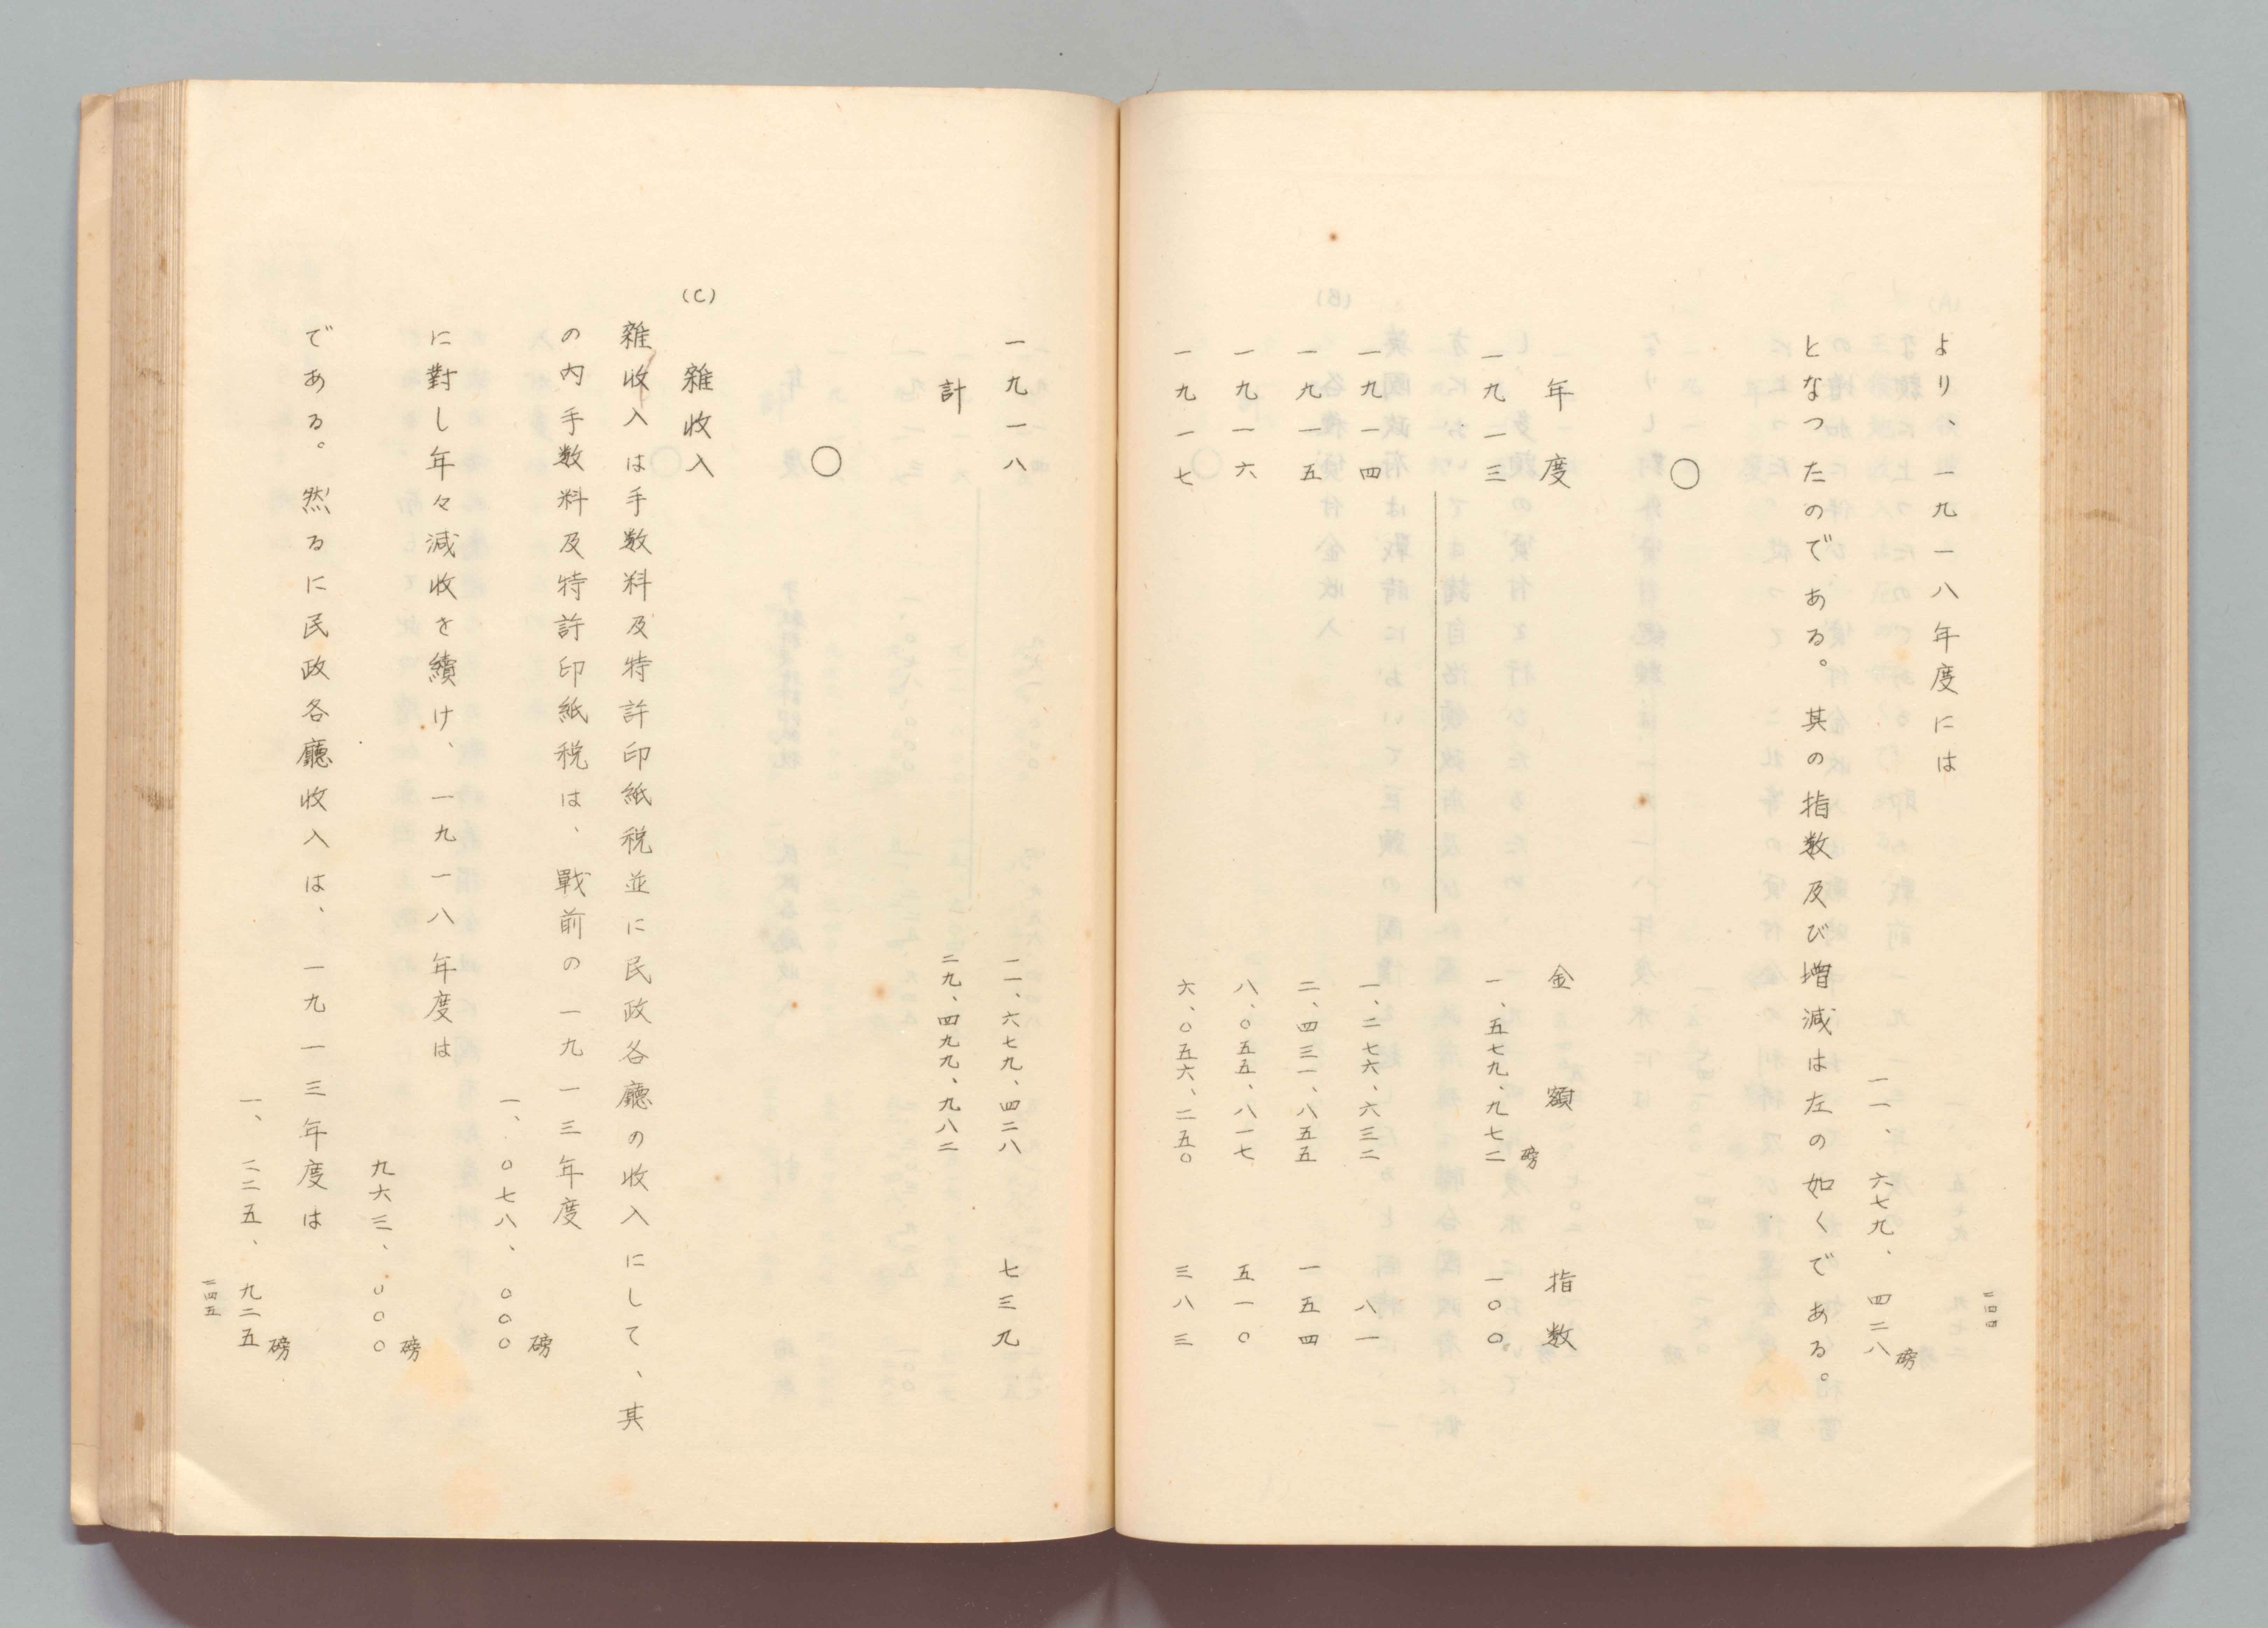 より、一九一八年度には
一一、六七九、四二八磅
となつたのである。其の指数及び増減は左の如くである。
○
年度 金額 指数
一九一三 一、五七九、九七二磅 一〇〇
一九一四 一、二七六、六三二 八一
一九一五 二、四三一、八五五 一五四
一九一六 八、〇五五、八一七 五一〇
一九一七 六、〇五六、二五〇 三八三
二四四
一九一八 一一、六七九、四二八 七三九
計 二九、四九九、九八二
○
(C) 雑收入
雑收入は手数料及特許印紙税並に民政各廳の收入にして、其
の内手数料及特許印紙税は、戰前の一九一三年度
一、〇七八、〇〇〇磅
に對し年々減收を續け、一九一八年度は
九六三、〇〇〇磅
である。然るに民政各廳收入は、一九一三年度は
一、二二五、九二五磅
二四五